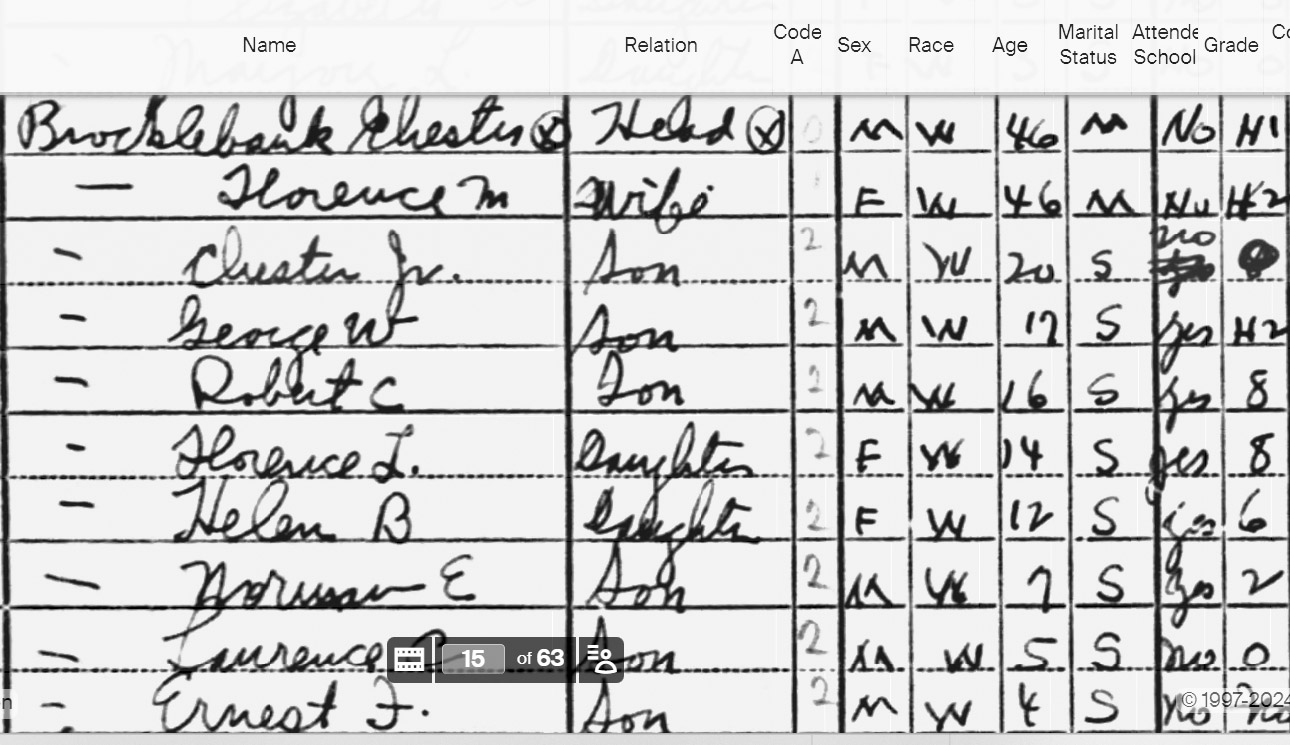 Name Relation Code A Sex Race Age Marital Status Attende School Grade Co
Brocklebank Chester ⓧ Head ⓧ 0 M W 46 M No H1
— Florence M Wife 1 F W 46 M No H2
- Chester Jr. Son 2 M W 20 S no
- George W Son 2 M W 17 S yes H2
- Robert C Son 2 M W 16 S yes 8
- Florence L. Daughter 2 F W 14 S yes 8
- Helen B Daughter 2 F W 12 S yes 6
— Norman E Son 2 M W 7 S yes 2
- Laurence Son 2 M W 5 S no 0
15 of 63
- Ernest F. Son 2 M W 4 S no
© 1997-2024